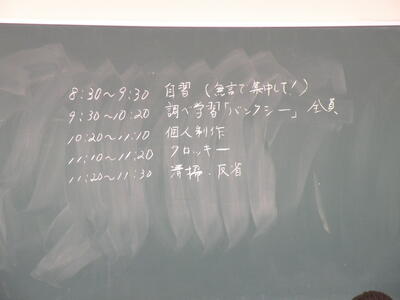 8:30〜9:30 自習 (無言で集中して!)
9:30〜10:20 調べ学習「バンクシー」全員
10:20〜11:10 個人制作
11:10〜11:20 クロッキー
11:20〜11:30 清掃・反省